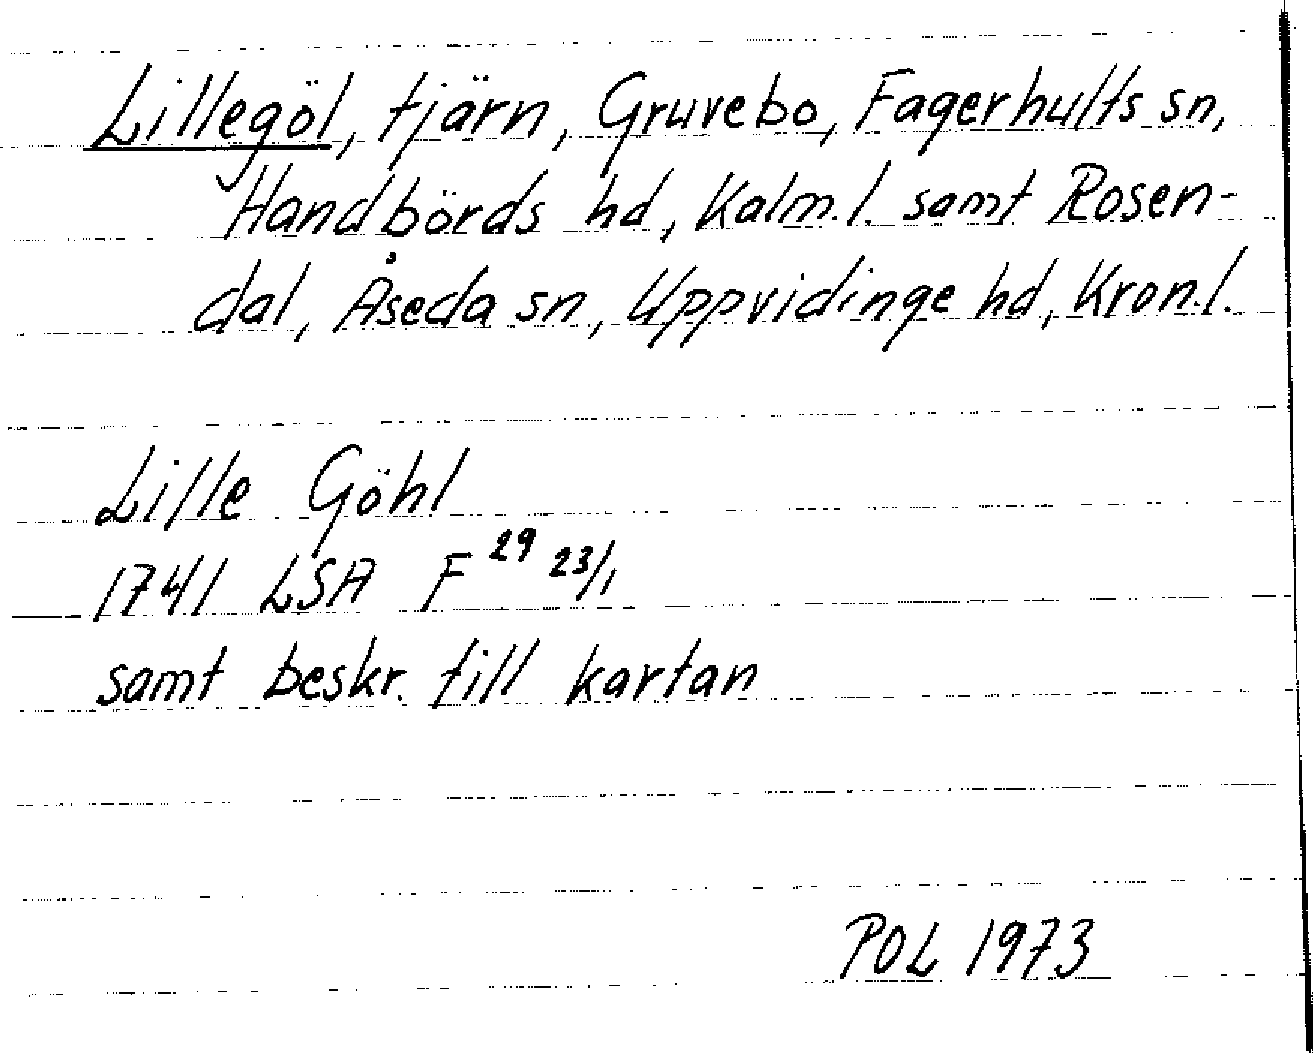 Lillegöl, tjärn, Gruvebo, Fagerhults sn,
Handbörds hd, Kalm. l. samt Rosen-
dal, Åseda sn, Uppvidinge hd, Kron. l.
Lille Göhl
1741 LSA F 29 23/1
samt beskr. till kartan
POL 1973